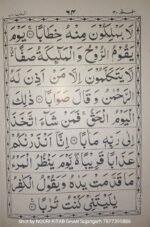 ٦٤
لَا يَمْلِكُوْنَ مِنْهُ خِطَابًا ۝ يَوْمَ
يَقُوْمُ الرُّوْحُ وَالْمَلٰٓئِكَةُ صَفًّا
لَّا يَتَكَلَّمُوْنَ اِلَّا مَنْ اَذِنَ لَهُ
الرَّحْمٰنُ وَقَالَ صَوَابًا ۝ ذٰلِكَ
الْيَوْمُ الْحَقُّ فَمَنْ شَآءَ اتَّخَذَ
اِلٰى رَبِّهٖ مَاٰبًا ۝ اِنَّآ اَنْذَرْنٰكُمْ
عَذَابًا قَرِيْبًا يَّوْمَ يَنْظُرُ الْمَرْءُ
مَا قَدَّمَتْ يَدٰهُ وَيَقُوْلُ الْكٰفِرُ
يٰلَيْتَنِيْ كُنْتُ تُرٰبًا ۝
Shot by NOORI KITAB GHAR Sujangarh 7877399886